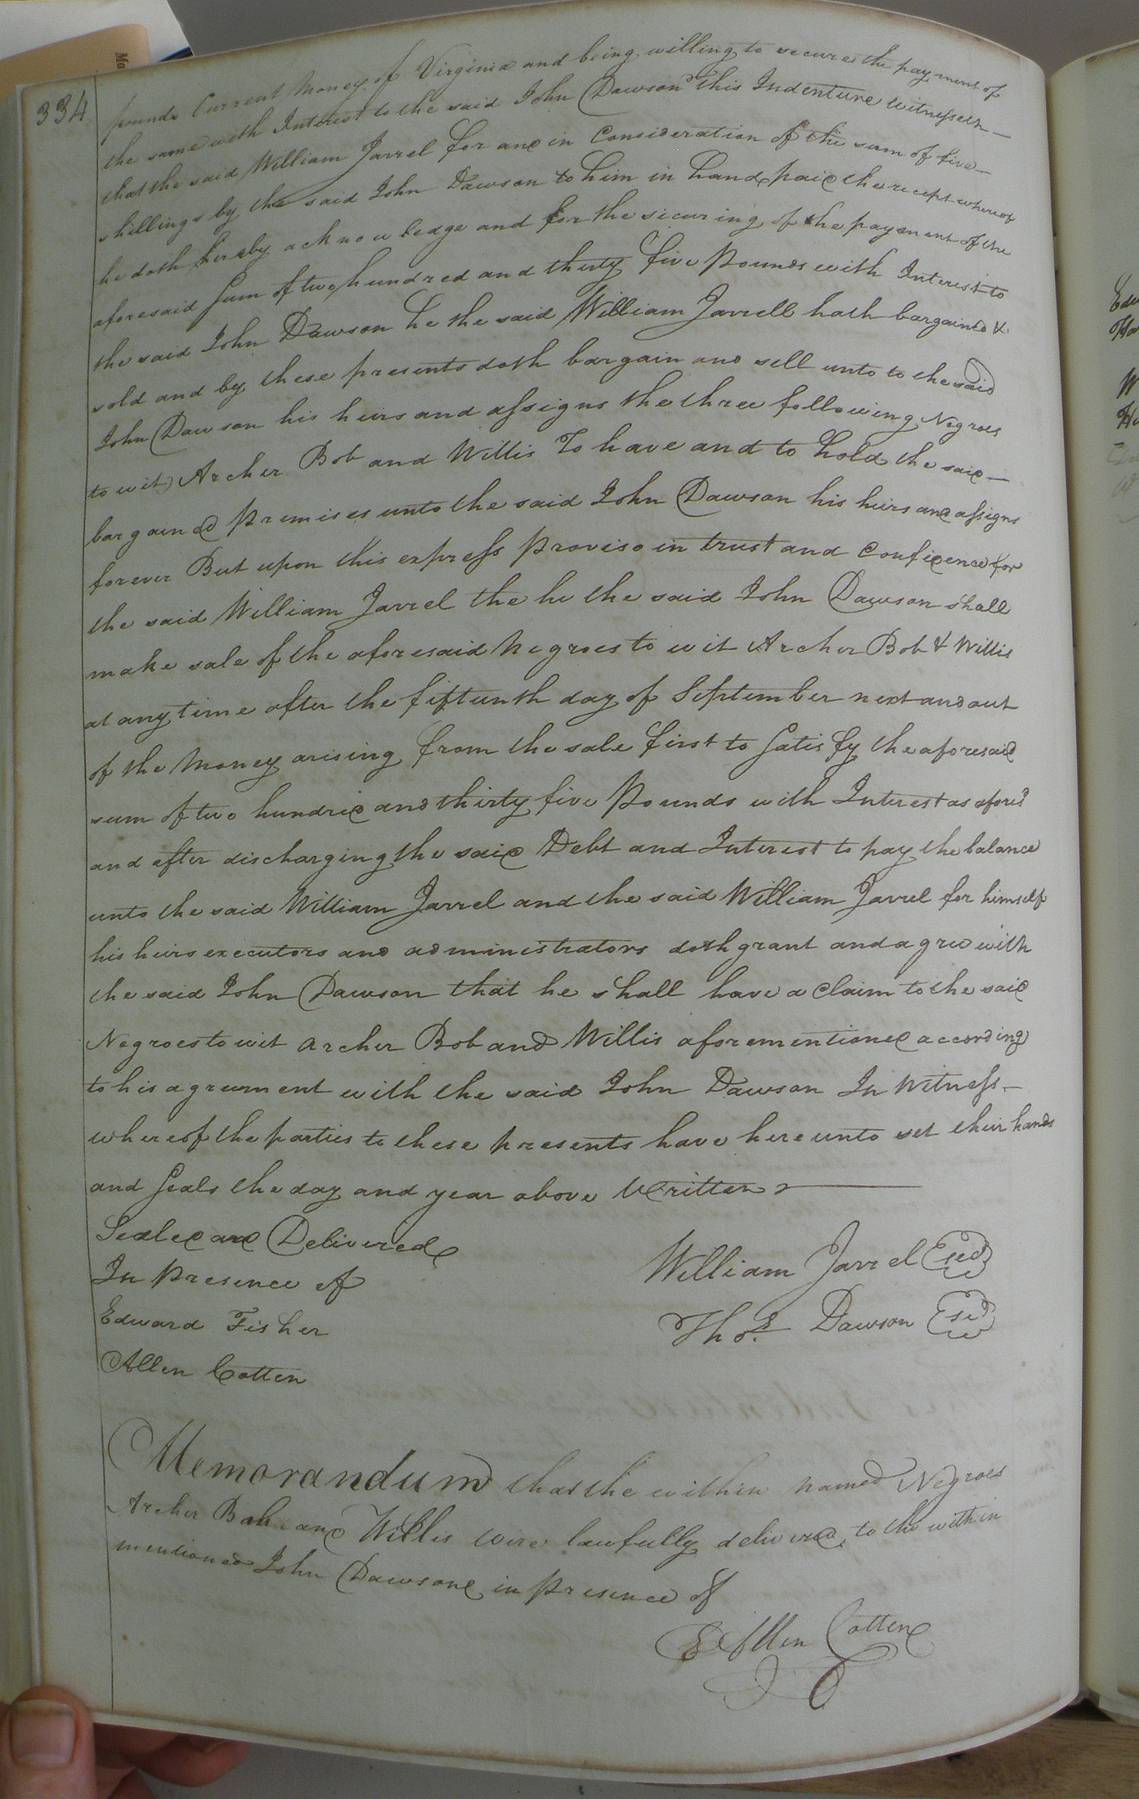 334
pounds Current Money of Virginia and being willing to secure the payment of
the same with Interest to the said John Dawson this Indenture witnesseth—
that the said William Jarrel for and in Consideration of the sum of five—
shillings by the said John Dawson to him in hand paid the recept whereof
he doth hereby acknowledge and for the securing of the payment of the
aforesaid Sum of two hundred and thirty five Pounds with Interest to
the said John Dawson he the said William Jarrell hath bargained &
sold and by these presents doth bargain and sell unto to the said
John Dawson his heirs and assigns the three following Negroes
to wit) Archer Bob and Willis To have and to hold the said—
bargained premises unto the said John Dawson his heirs and assigns
forever But upon this express proviso in trust and confidence for
the said William Jarrel the he the said John Dawson shall
make sale of the aforesaid Negroes to wit Archer Bob & Willis
at any time after the fifteenth day of September next and out
of the Money arising from the sale first to satisfy the aforesaid
sum of two hundred and thirty five Pounds with Interest as afores.d
and after discharging the said Debt and Interest to pay the balance
unto the said William Jarrel and the said William Jarrel for himself
his heirs executors and administrators doth grant and agree with
the said John Dawson that he shall have a Claim to the said
Negroes to wit Archer Bob and Willis aforementioned according
to his agreement with the said John Dawson In Witness—
whereof the parties to these presents have hereunto set their hands
and Seals the day and year above written
Sealed and Delivered
In Presence of
Edward Fisher
Allen Cotten
William Jarrel Seal
Tho.s Dawson Seal
Memorandum that the within named Negroes
Archer Bob and Willis were lawfully delivered to the within
mentioned John Dawson in presence of
Allen Cotten